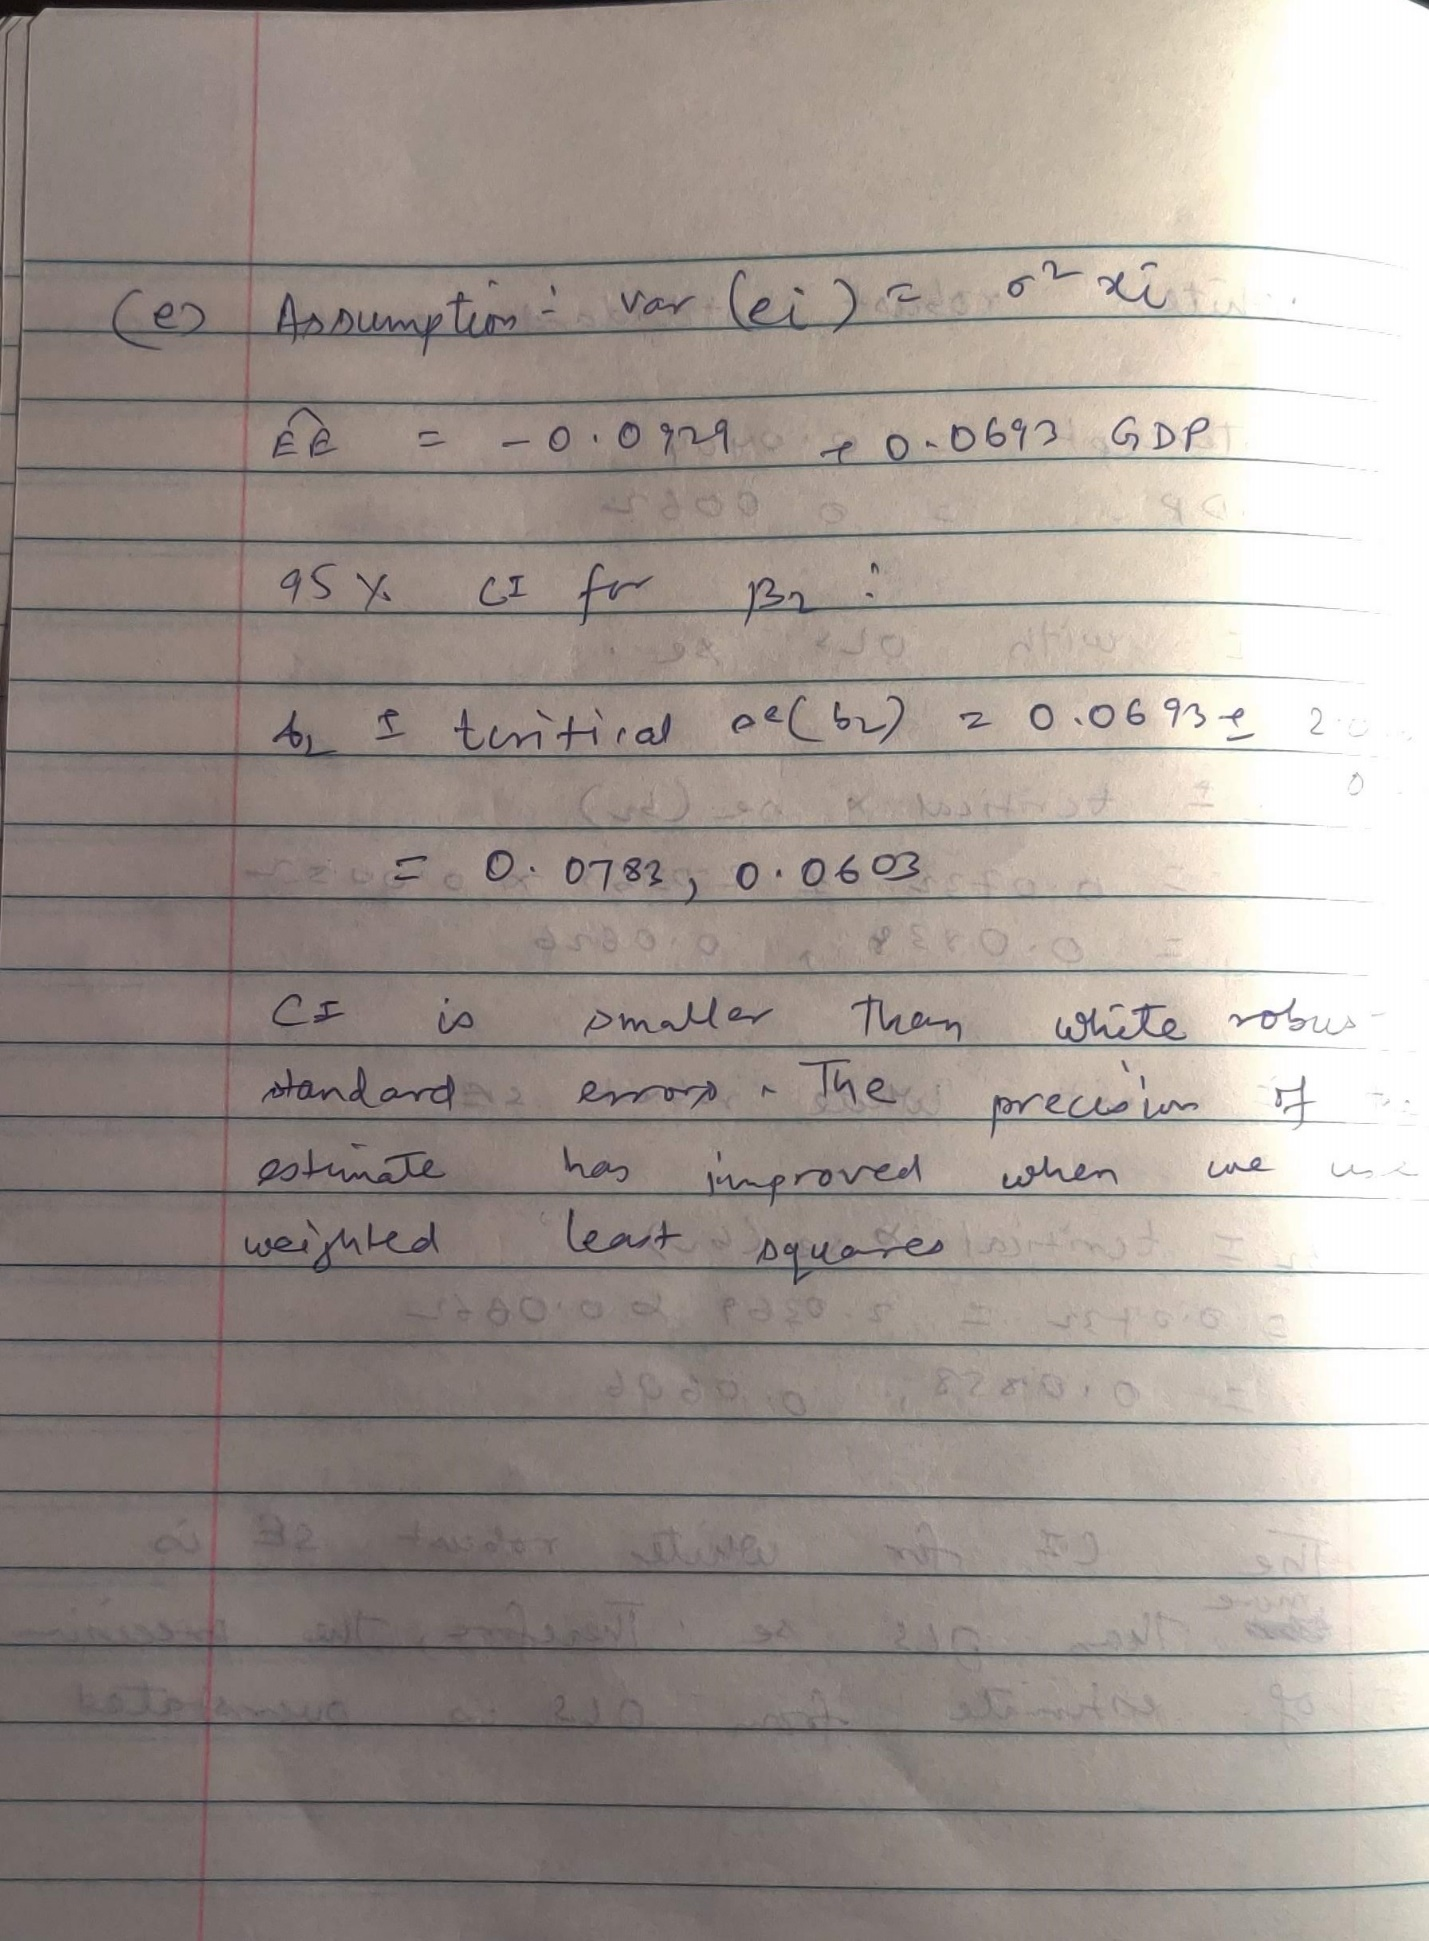 (e) Assumption : var (ei) = σ² xi
ÊÊ = -0.0929 + 0.0693 GDP
95 % CI for β2 :
b2 ± tcritical se(b2) = 0.0693 ± 2.0
0
= 0.0783, 0.0603
CI is smaller than white robus
standard errors. The precision of
estimate has improved when we use
weighted least squares